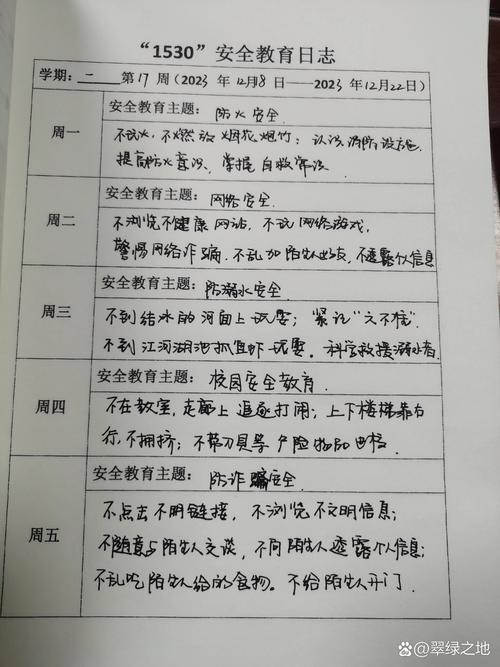 “1530”安全教育日志
学期：二 第17周（2023年12月18日——2023年12月22日）
周一
安全教育主题：防火安全
不玩火，不燃放烟花炮竹；认识消防设施
提高防火意识，掌握自救常识
周二
安全教育主题：网络安全
不浏览不健康网站，不玩网络游戏，
警惕网络诈骗.不乱加陌生人好友，不透露个人信息
周三
安全教育主题：防溺水安全
不到结冰的河面上玩耍；紧记“六不准”
不到江河湖池抓鱼虾玩耍。科学救援溺水者
周四
安全教育主题：校园安全教育
不在教室，走廊上追逐打闹；上下楼梯靠右
行，不拥挤；不带刀具等危险物品
周五
安全教育主题：防诈骗安全
不点击不明链接，不浏览不文明信息；
不随意与陌生人交谈，不向陌生人透露个人信息；
不乱吃陌生人给的食物。不给陌生人开门.
@翠绿之地